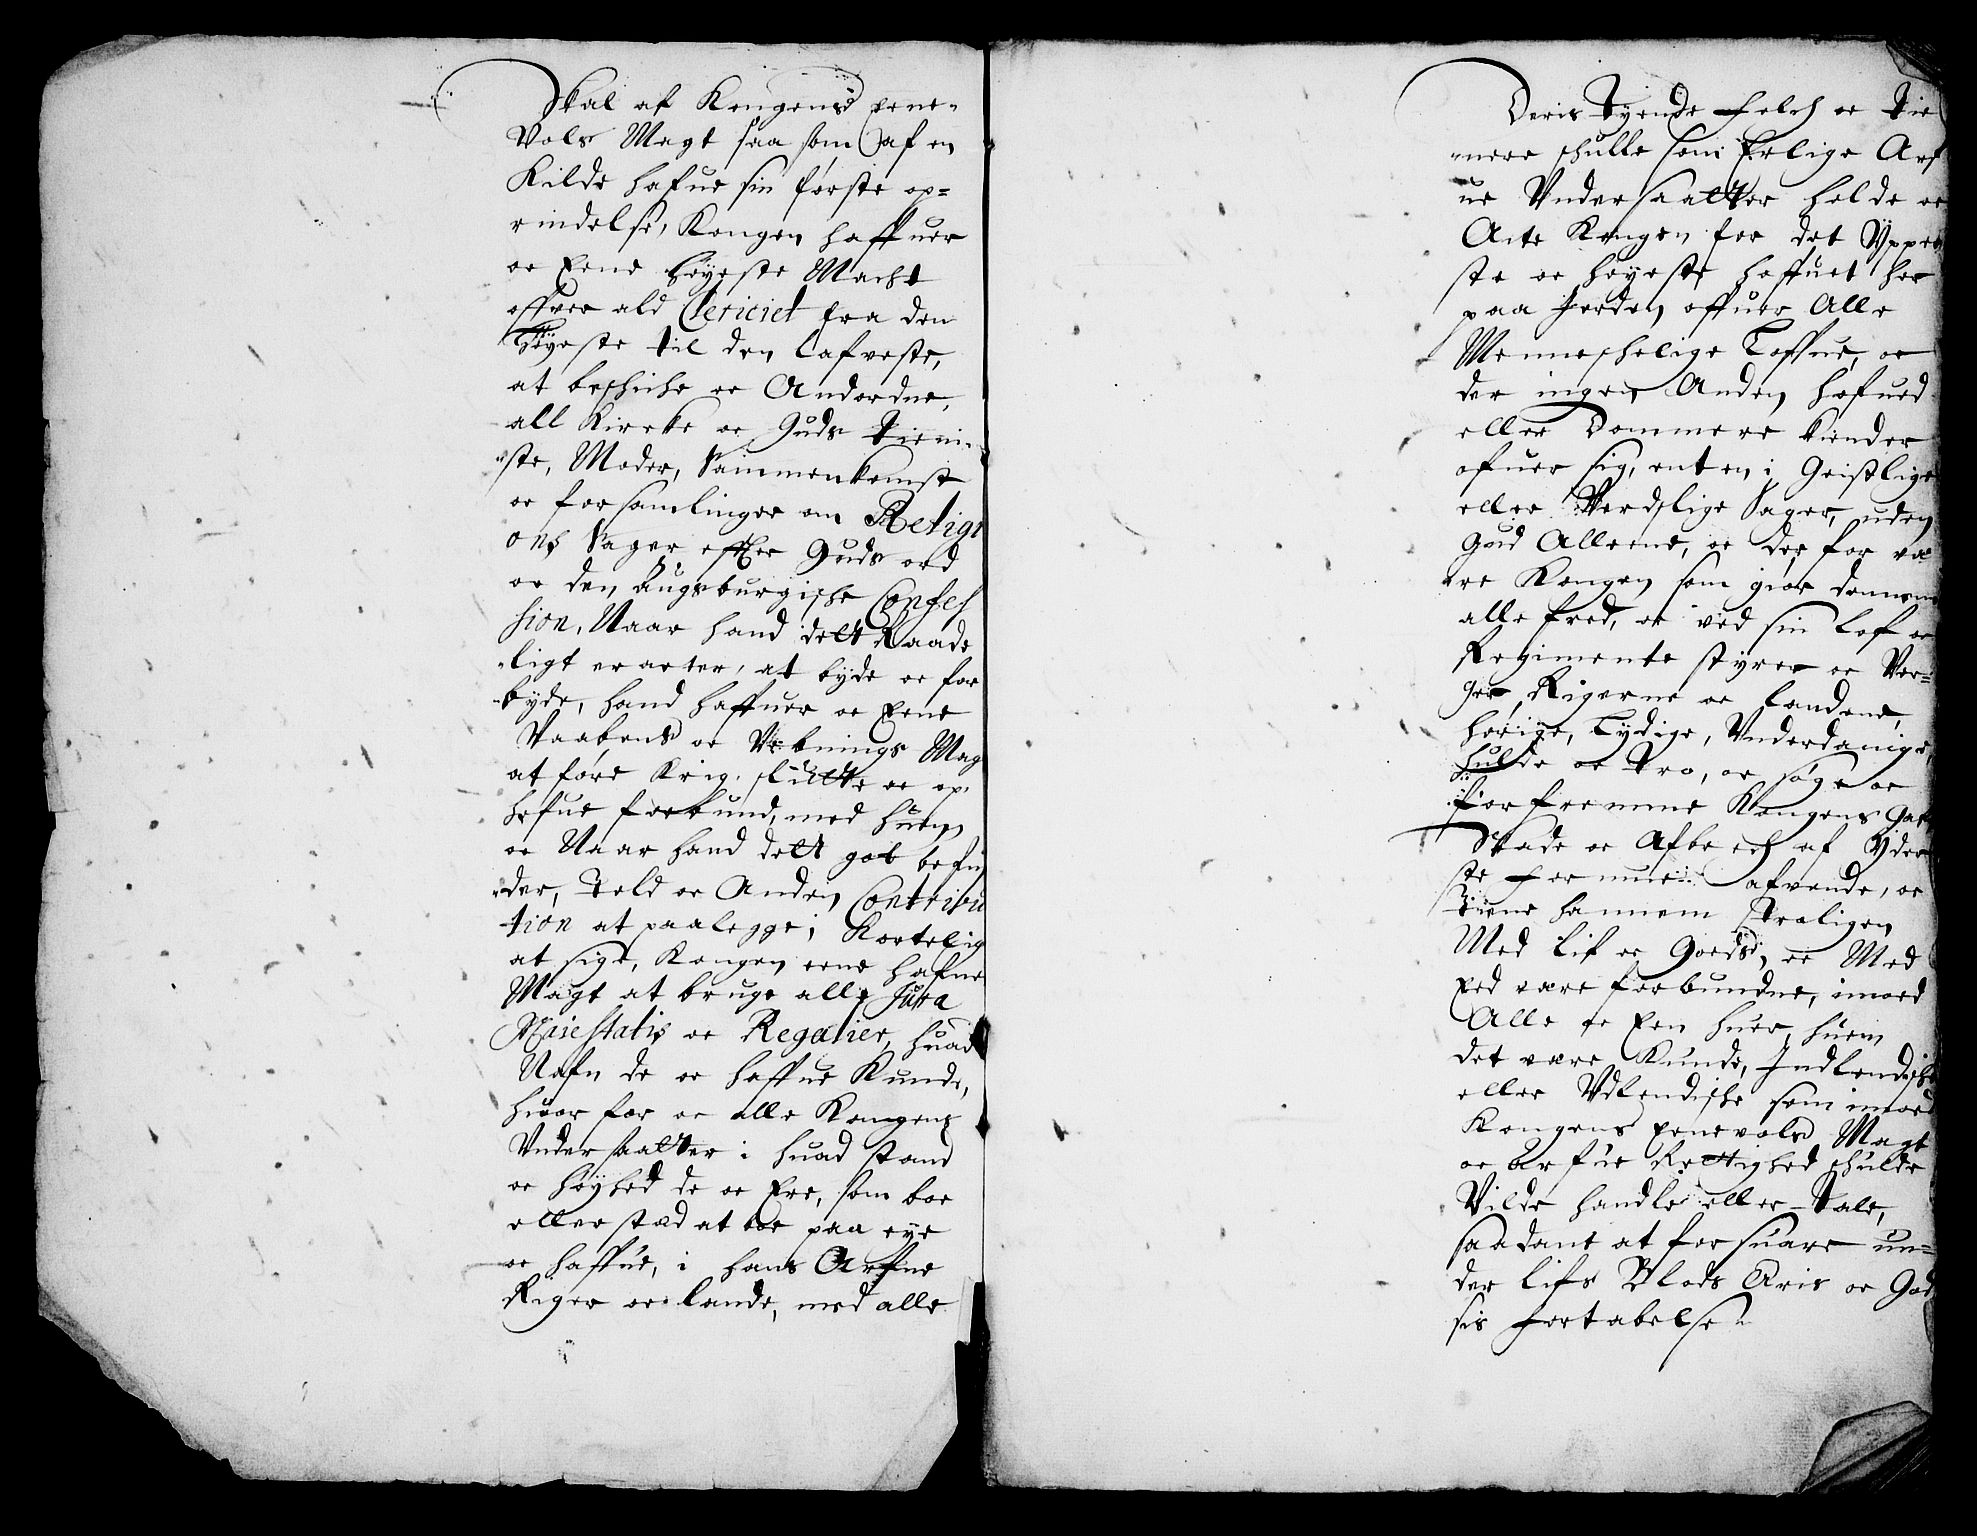 Skal af Kongens eene-
Vols Magt saa som af en
Kilde hafue sin første op-
rindelse, Kongen haffuer
oc Eene høyeste Macht
offver ald Clericiet fra den
høyeste til den Lafveste,
at beskicke oc Anordne,
all Kircke oc Guds tieni-
ste, Moder, Sammenkomst
oc forsamlinger om Religi
ons Sager, effter Guds ord
oc den Augsburgische Confes
sion, Naar hand dett Raade
ligt eracter, at byde oc for
byde, hand haffuer oc Eene
Vaabens oc Vebnings Mag
at føre Krig, slutte oc op-
hefue forbund, med huem
oc Naar hand dett got befin
der, Told oc Anden Contribu
tion at paalegge, Kortelig
at sige, Kongen eene hafue
Magt at bruge alle Jura
Majestatis oc Regalier, huad
Nafn de oc haffue Kunde,
huor for oc alle Kongens
Undersaatter i huad stand
oc høyhed de oc Ere, som boe
eller stæd at boe paa eye
oc haffue, i hans Arfue
Riger oc lande, med alle
Deris Tyende folch oc Tie
nere skulle som Erlige Arf
ue Undersaatter holde oc
Acte Kongen for det Ypper
ste oc høyeste hoffuet her
paa Jorden offuer Alle
Menneskelige Loffue, oc
der ingen Anden hofued
eller Dommere kiender
ofuer sig, enten i Geistlige
eller Verdslige Sager, uden
Gud Alleene, oc der for væ
re Kongen som gior dennem
alle fred, oc ved sin Lof oc
Regimente styrer oc Ver-
ger Rigerne oc Landene,
horige, Lydige, Underdanige,
hulde oc tro, oc søge oc
forfremme Kongens Gafn
Skade oc Afbrech af Yder
ste formue afvende, oc
tiene hannem troligen
Med Lif oc Goeds, oc Med
Eed være forbundne, imoed
Alle oc Een huer, huem
det være Kunde, Indlendiske
eller Udlendiske som imoed
Kongens eenevols Magt
oc Arfue Rettighed skulde
Vilde handle eller Tale,
saadant at forsuare un-
der Lifs Blods Æris oc God
sis fortabelse